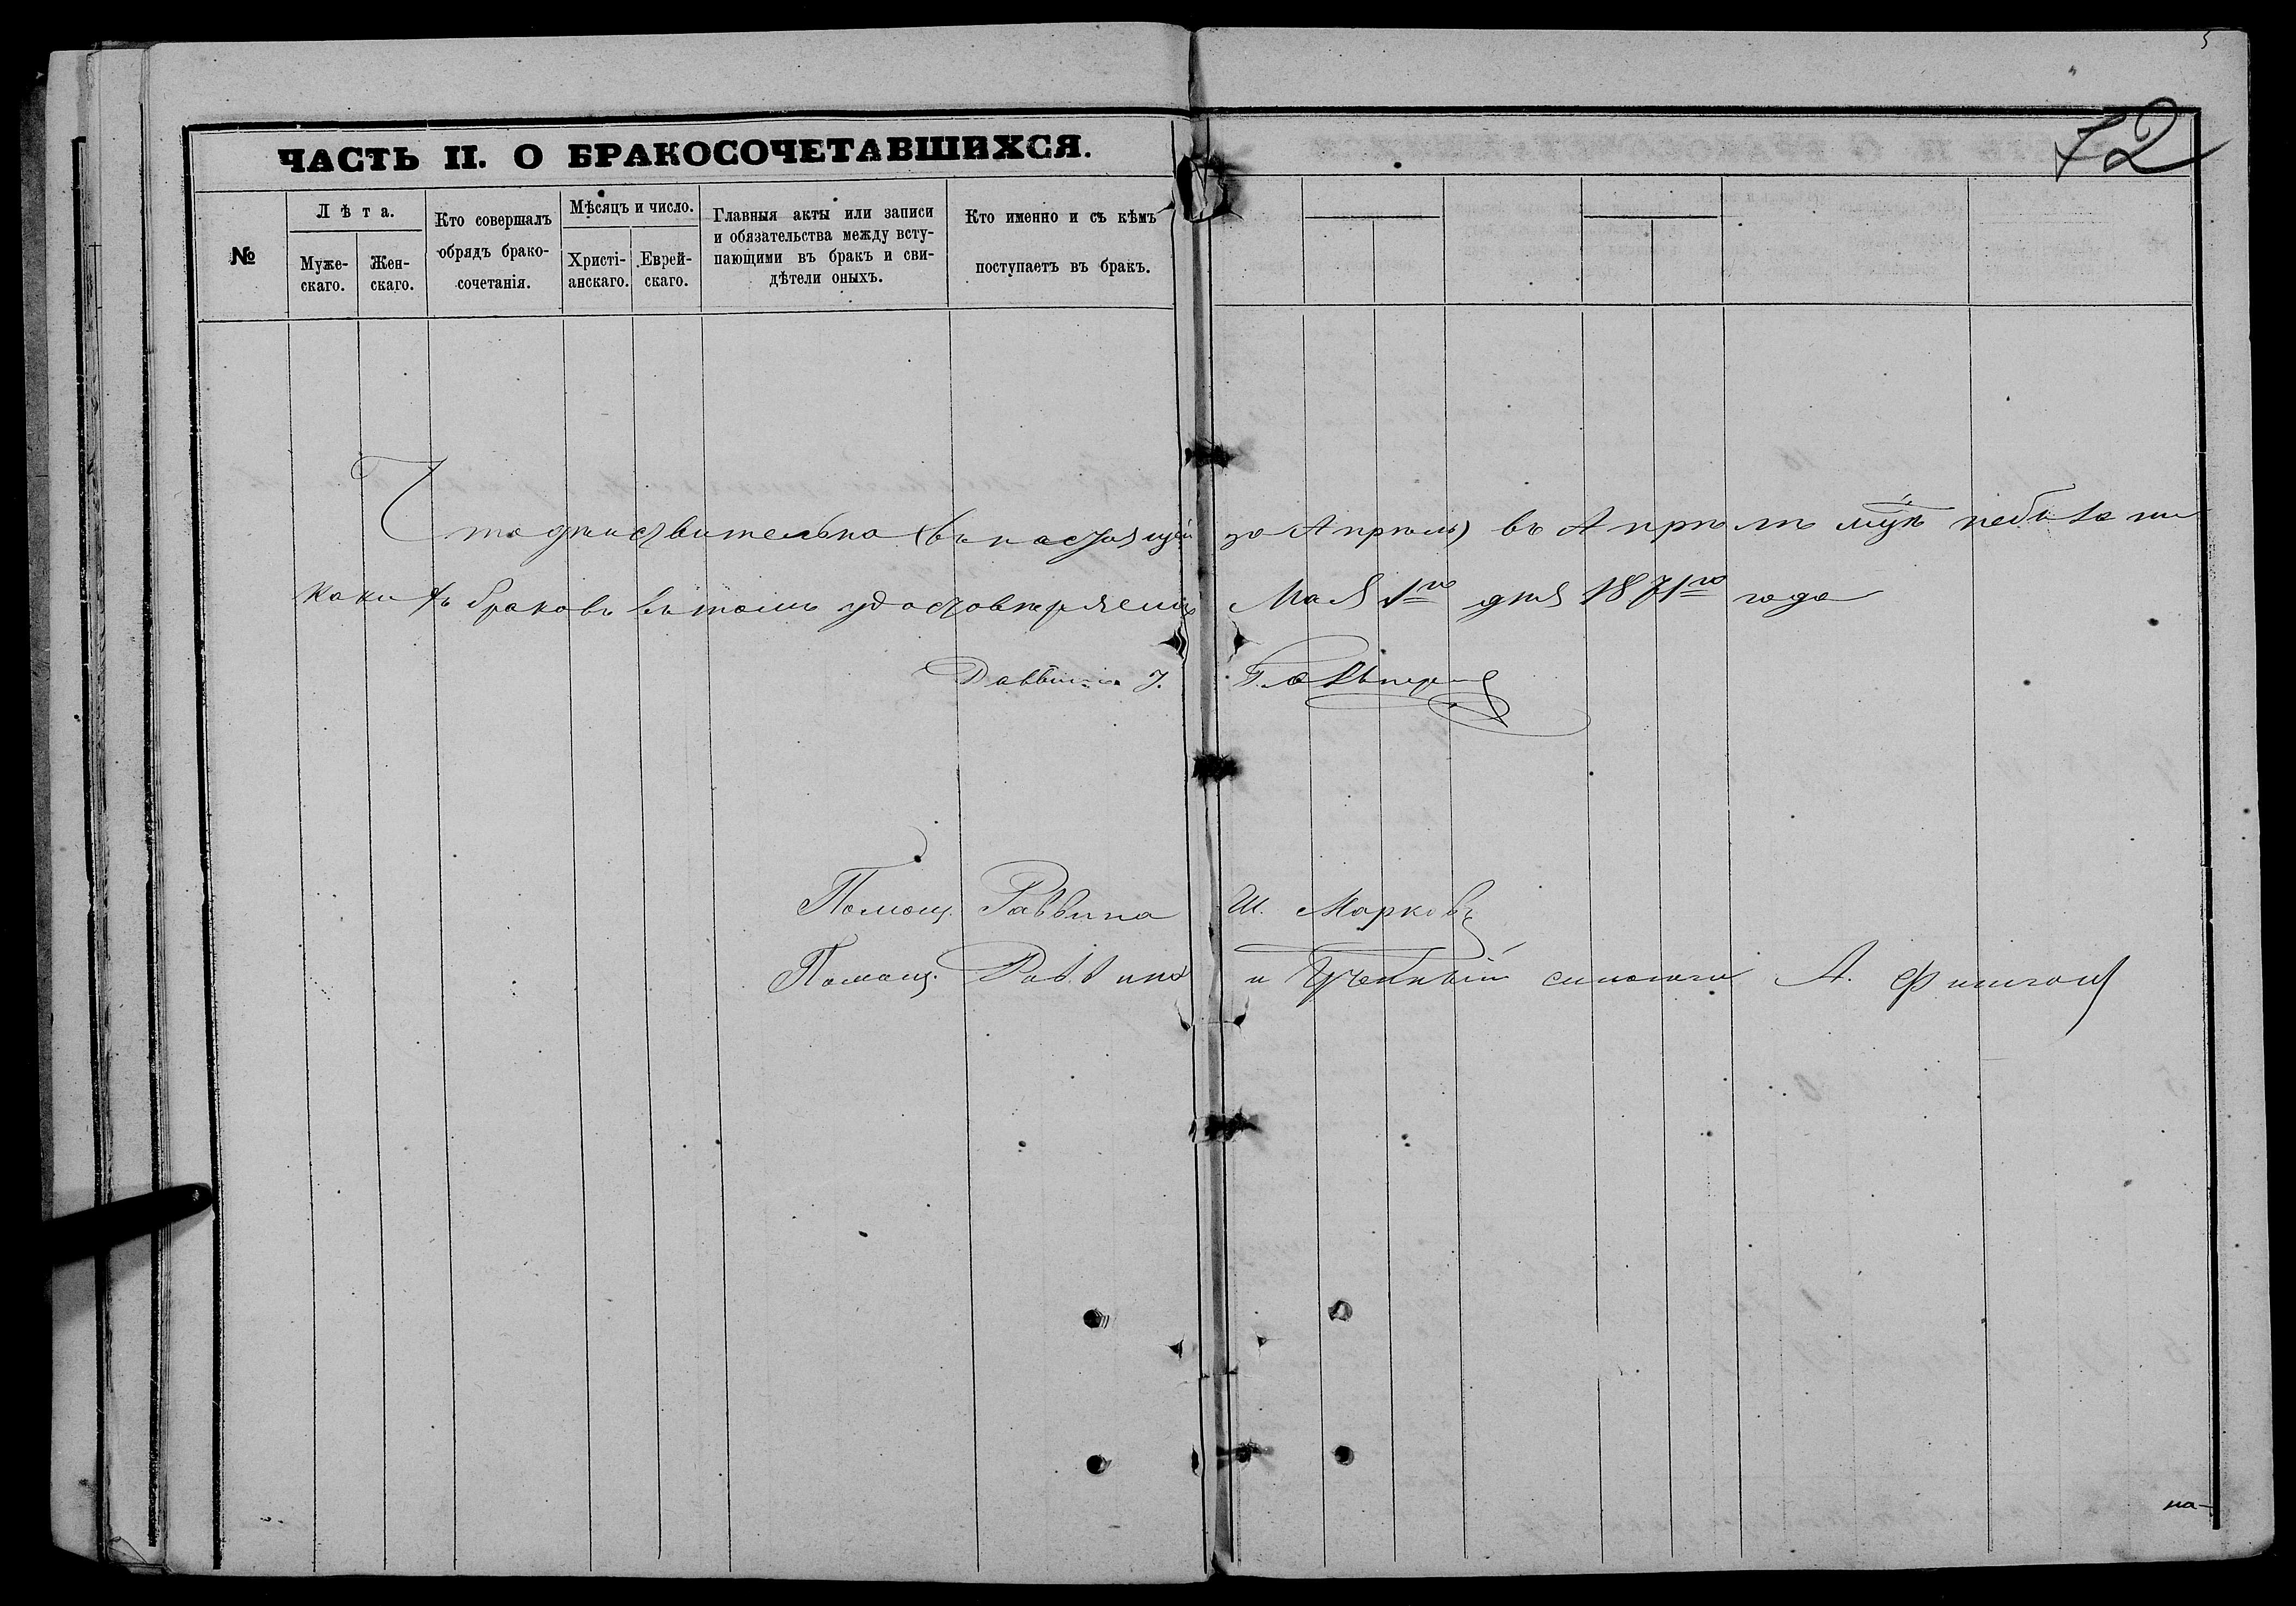 5
72
ЧАСТЬ II. О БРАКОСОЧЕТАВШИХСЯ.
№
Лѣта.
Муже-
скаго.
Жен-
скаго.
Кто совершалъ
обрядъ брако-
сочетанія.
Мѣсяцъ и число.
Христі-
анскаго.
Еврей-
скаго.
Главныя акты или записи
и обязательства между всту-
пающими въ бракъ и сви-
дѣтели оныхъ.
Кто именно и съ кѣмъ
поступаетъ въ бракъ.
Что дѣиствительно (въ настоящей за Апрѣль) въ Апрѣлѣ мцѣ небыло ни
какихъ браковъ въ томъ удостовѣряемъ Мая 1го дня 1871го года
Раввинъ І. Гальперинъ
Помощ. Раввина Ш. Марковъ
Помощ. Раввина и Ученный синагоги А.
на-